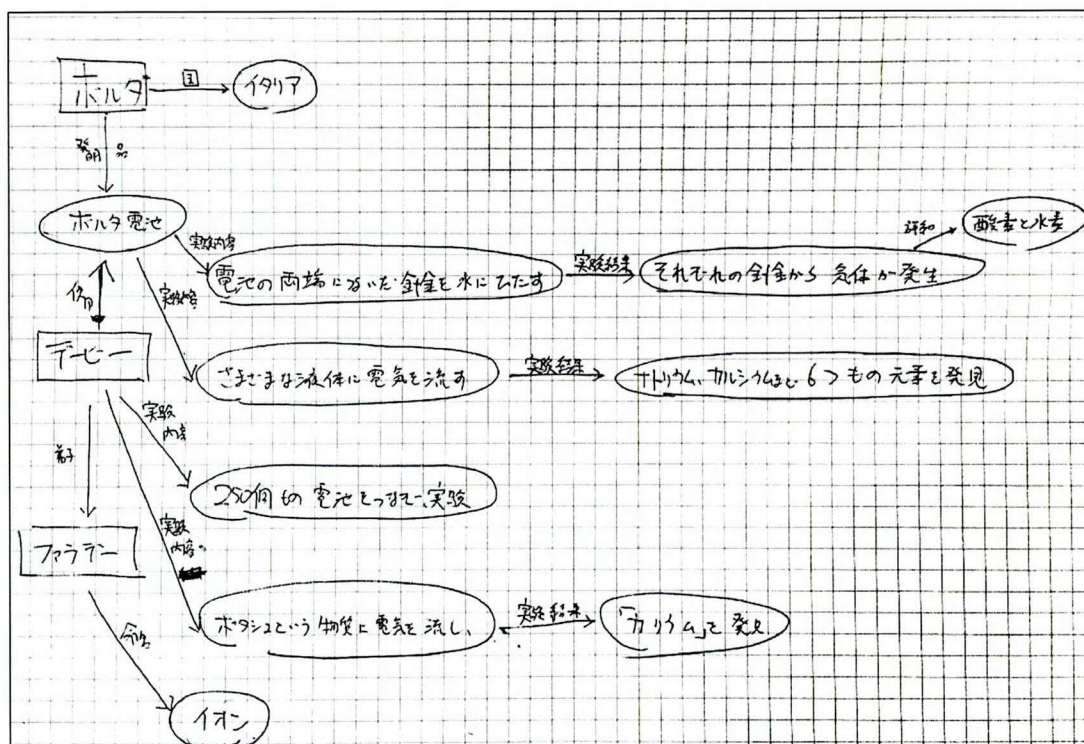 ボルタ
国
イタリア
発明品
ボルタ電池
実験内容
電池の両端につないだ針金を水にひたす
実験結果
それぞれの針金から気体が発生
酸素と水素
使用
実験内容
デービー
さまざまな液体に電気を流す
実験結果
ナトリウム、カルシウムなど6つもの元素を発見
実験
内容
弟子
250個もの電池をつなぎ、実験
実験
内容
ファラデー
ポタシュという物質に電気を流し、
実験結果
「カリウム」を発見
命名
イオン